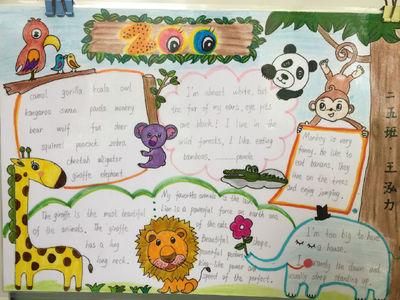 ZOO
camel gorilla koala owl
kangaroo swan panda monkey
bear wolf fox deer
squirrel peacock zebra
cheetah alligator
giraffe elephant
I'm almost white, but
the fur of my ears, eye pits
are black! I live in the
wild forests, I like eating
bamboos. panda
Monkey is very
funny. He like to
eat banana. They
live on the trees
and enjoy jumping.
二五班 王泓力
The giraffe is the most beautiful
of the animals. The giraffe
has a
long neck.
My favorite animals is the lion.
Lion is a powerful force on earth and
of the cats.
Beautiful shape,
powerful
king-like power and
speed of the perfect.
I'm too big to have
a house.
I rarely lie down and
usually sleep standing up.